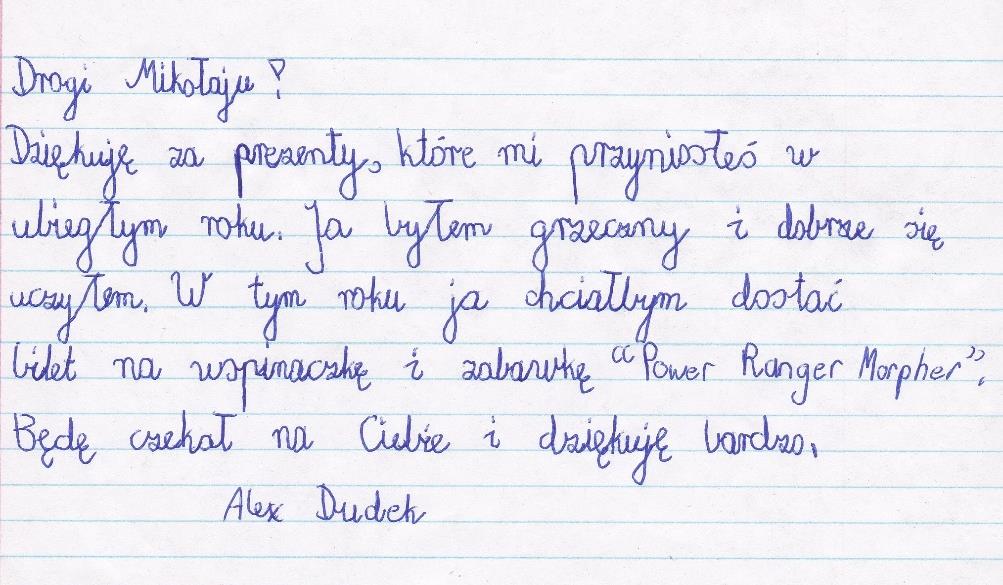 Drogi Mikołaju!
Dziękuję za prezenty, które mi przyniosłeś w
ubiegłym roku. Ja byłem grzeczny i dobrze się
uczyłem. W tym roku ja chciałbym dostać
bilet na wspinaczkę i zabawkę “Power Ranger Morpher”.
Będę czekał na Ciebie i dziękuję bardzo.
Alex Dudek